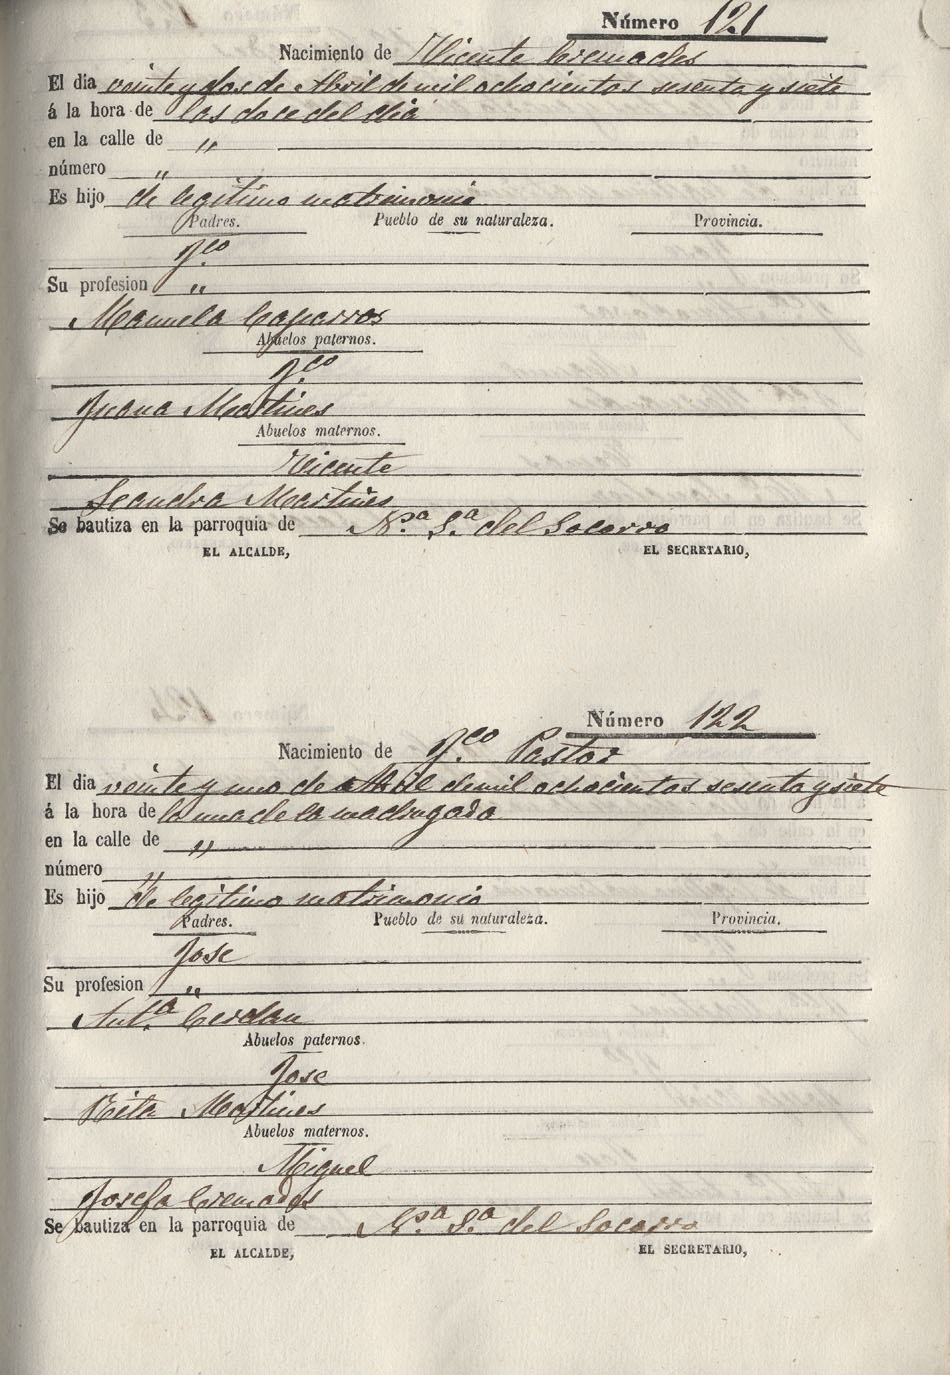 Número 121
Nacimiento de Vicente Cremades
El dia veinte y dos de Abril de mil ochocientos sesenta y siete
á la hora de las doce del dia
en la calle de "
número "
Es hijo de legitimo matrimonio
Padres. Pueblo de su naturaleza. Provincia.
Fco.
Su profesion "
Manuela Caparros
Abuelos paternos.
Fco.
Juana Martines
Abuelos maternos.
Vicente
Leandra Martines
Se bautiza en la parroquia de Nª. Sª. del Socorro
EL ALCALDE, EL SECRETARIO,
Número 122
Nacimiento de Fco. Pastor
El dia veinte y uno de Abril de mil ochocientos sesenta y siete
á la hora de la una de la madrugada
en la calle de "
número "
Es hijo de legitimo matrimonio
Padres. Pueblo de su naturaleza. Provincia.
Jose
Su profesion "
Antª. Cerdan
Abuelos paternos.
Jose
Rita Martines
Abuelos maternos.
Miguel
Josefa Cremades
Se bautiza en la parroquia de Nª. Sª. del Socorro
EL ALCALDE, EL SECRETARIO,